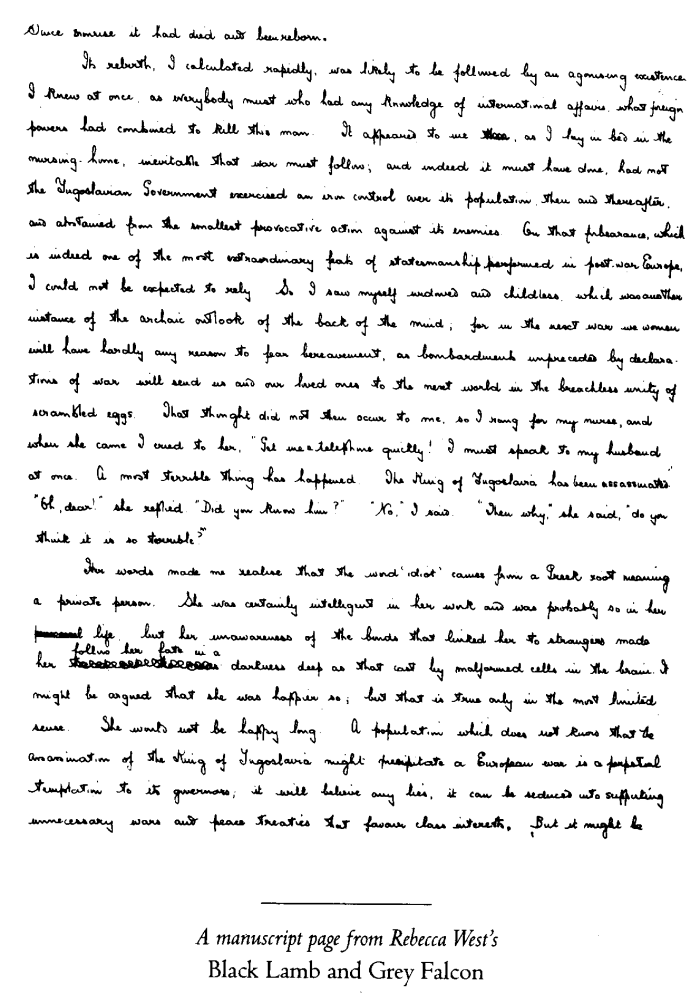 Since sunrise it had died and been reborn.
Its rebirth, I calculated rapidly, was likely to be followed by an agonising existence.
I knew at once, as everybody must who had any knowledge of international affairs, what foreign
powers had combined to kill this man. It appeared to me, as I lay in bed in the
nursing-home, inevitable that war must follow; and indeed it must have done, had not
the Yugoslavian Government exercised an iron control over its population, then and thereafter,
and abstained from the smallest provocative action against its enemies. On that forbearance, which
is indeed one of the most extraordinary feats of statesmanship performed in post-war Europe,
I could not be expected to rely. So I saw myself widowed and childless, which was another
instance of the archaic outlook of the back of the mind; for in the next war we women
will have hardly any reason to fear bereavement, as bombardments unpreceded by declara-
tions of war will send us and our loved ones to the next world in the breachless unity of
scrambled eggs. That thought did not then occur to me, so I rang for my nurse, and
when she came I cried to her, "Get me a telephone quickly! I must speak to my husband
at once. A most terrible thing has happened. The King of Yugoslavia has been assassinated."
"Oh, dear!" she replied "Did you know him?" "No," I said. "Then why," she said, "do you
think it is so terrible?"
Her words made me realise that the word 'idiot' comes from a Greek root meaning
a private person. She was certainly intelligent in her work and was probably so in her
personal life, but her unawareness of the binds that linked her to strangers made
her follow her fate in a darkness deep as that cast by malformed cells in the brain. It
might be argued that she was happier so; but that is true only in the most limited
sense. She would not be happy long. A population which does not know that the
assassination of the King of Yugoslavia might precipitate a European war is a perpetual
temptation to its governors; it will believe any lies, it can be seduced into supporting
unnecessary wars and peace treaties that favour class interests. But it might be
A manuscript page from Rebecca West's
Black Lamb and Grey Falcon